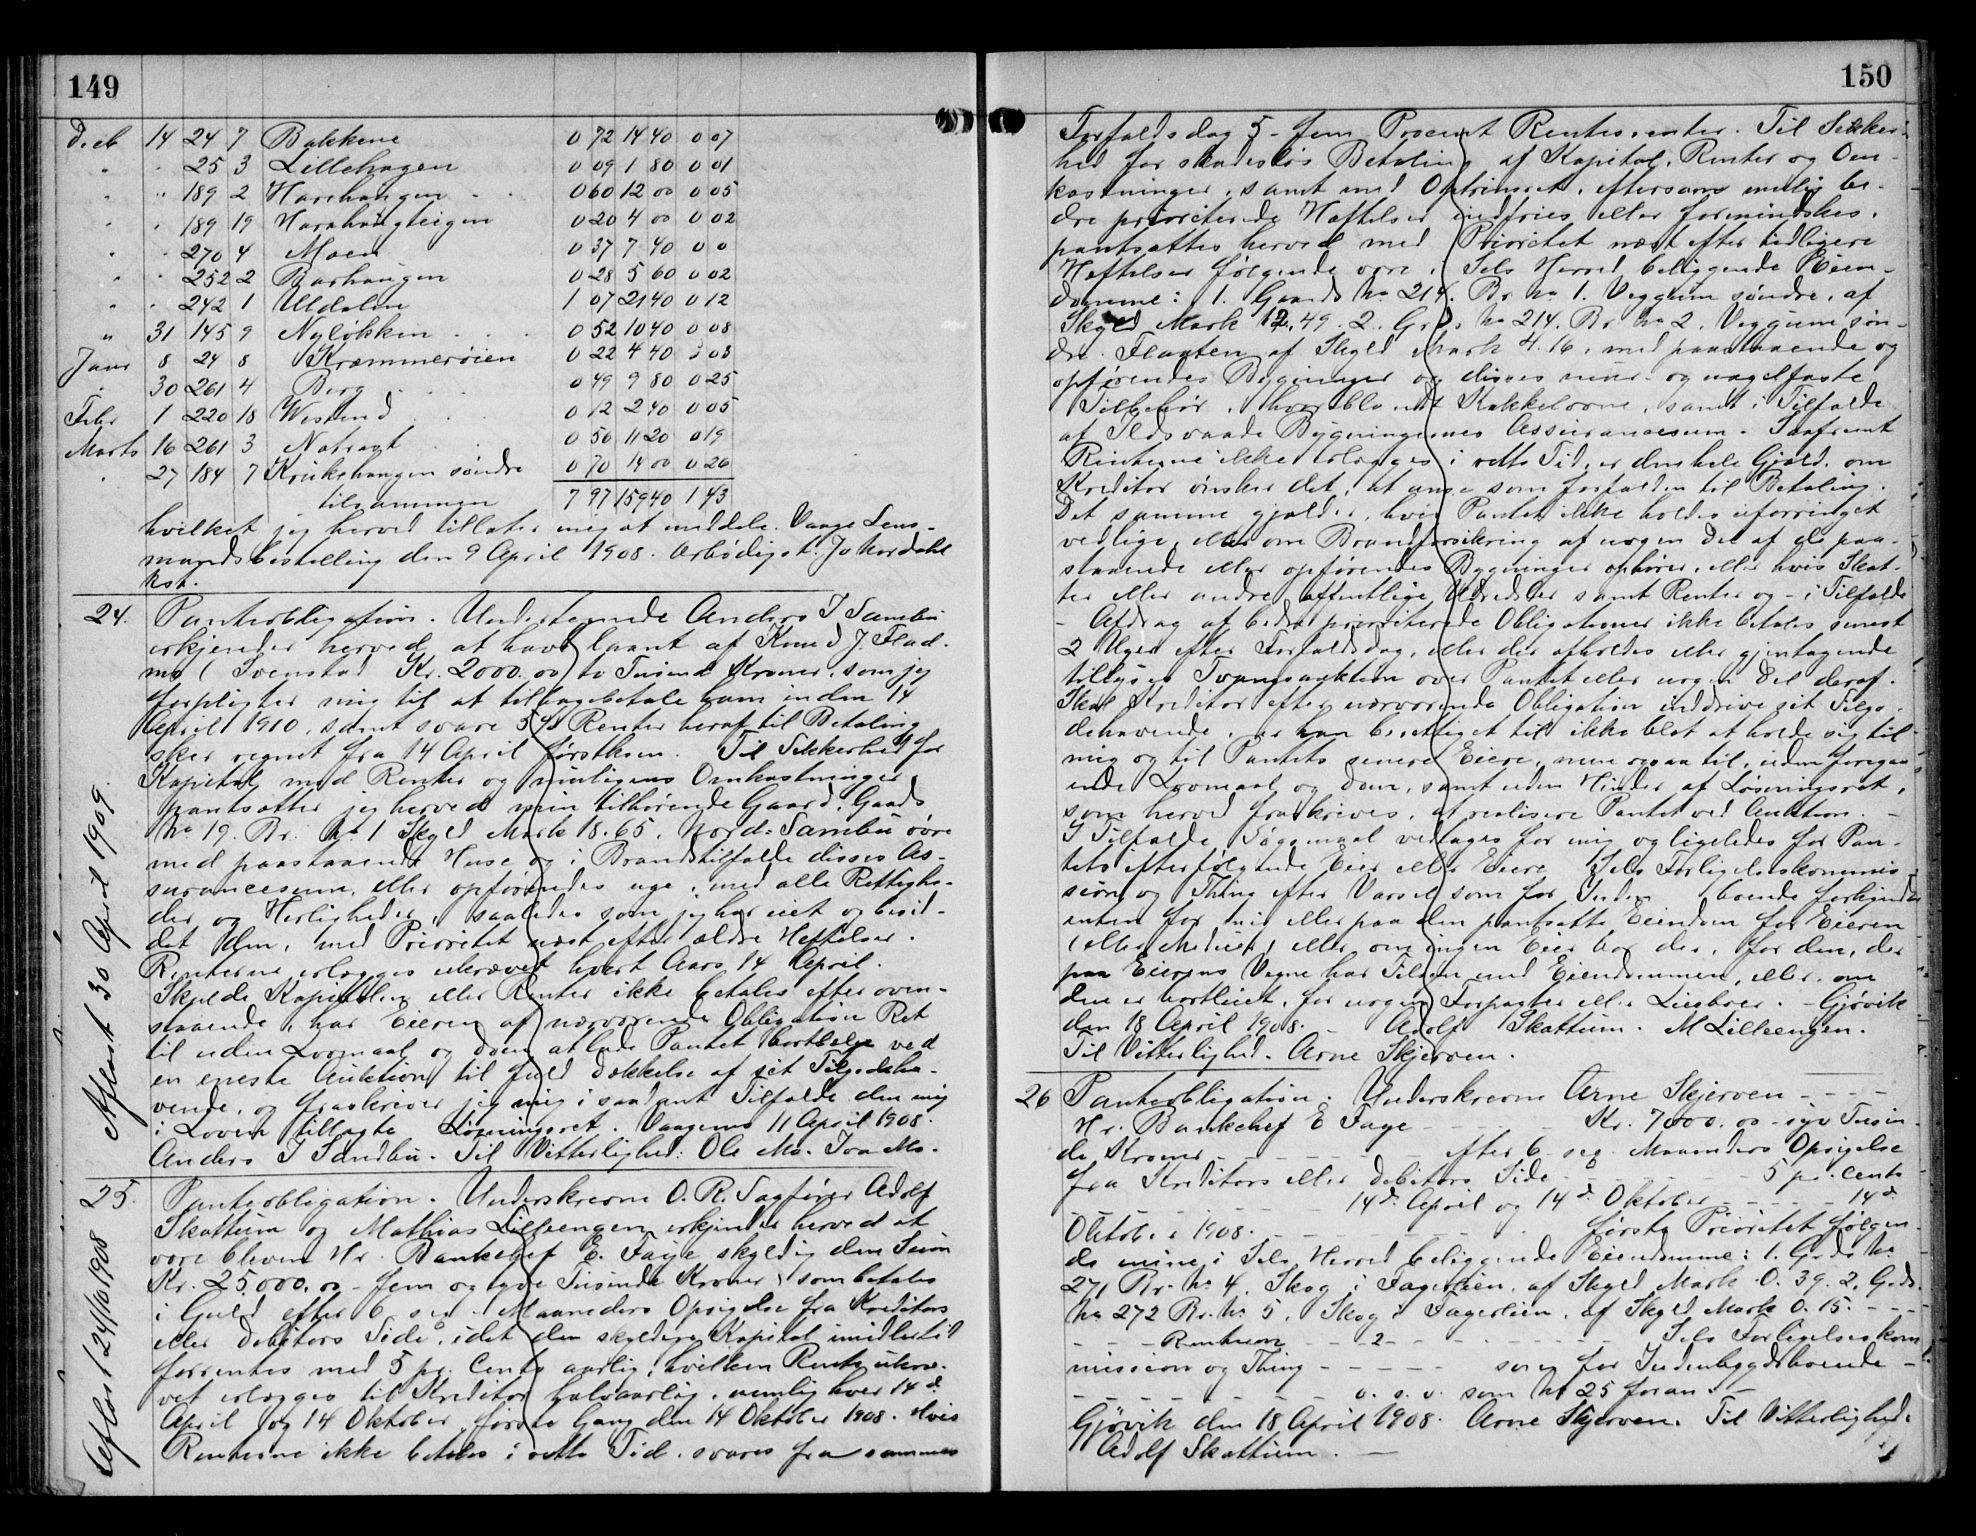 149
Decb 14 24 7 Bakkene 0 72 14 40 0 07
" " 25 3 Lillehagen 0 09 1 80 0 01
" " 189 2 Harehaugen 0 60 12 00 0 05
" " 189 19 Harehaugteigen 0 20 4 00 0 02
" " 270 4 Moen 0 37 7 40 0 0
" " 252 2 Barhaugen 0 28 5 60 0 02
" " 242 1 Uldalen 1 07 21 40 0 12
" 31 145 9 Nyløkken 0 52 10 40 0 08
Janr 8 24 8 Kræmmerøien 0 22 4 40 0 03
" 30 261 4 Berg 0 49 9 80 0 25
Febr 1 220 18 Westend 0 12 2 40 0 05
Marts 16 261 3 0 56 11 20 0 19
" 27 184 7 Krukehaugen søndre 0 70 14 00 0 26
tilsammen 7 97 159 40 1 43
hvilket jeg herved tillater mig at meddele. Vaage Lens-
mandsbestilling den 9 April 1908. Ærbødigst. Jo Nordahl
kst.
24. Panteobligation. Undertegnede Anders I Sandbu
erkjender herved at have laant af Knud J. Flad-
mo (Svenstad Kr. 2000.00 to Tusind Kroner, som jeg
forpligter mig til at tilbagebetale ham inden 14
April 1910, samt svare 5% Renter heraf til Betaling
sker regnet fra 14 April førstkom. Til Sikkerhed for
Kapital med Renter og muligens Omkostninger
pantsætter jeg herved min tilhørende Gaard, Gaards
No 19. Br. No 1 Skyld Mark 18.65, Nord-Sandbu øvre
med paastaaende Huse og i Brandstilfælde disses As-
surancesum, eller opførendes nye, med alle Rettighe-
der og Herligheder, saaledes som jeg har eiet og besid-
det den, med Prioritet næst efter ældre Heftelser.
Renterne erlægges ukrævet hvert Aars 14 April.
Skulde Kapitalen eller Renter ikke betales efter oven-
staaende, har Eieren af nærværende Obligation Ret
til uden Lovmaal og Dom at lade Pantet bortsælge ved
en eneste Auktion til fuld Dækkelse af sit Tilgodeha-
vende, og fraskriver jeg mig i saadant Tilfælde den mig
i Loven tillagte Løsningsret. Vaagemo 11 April 1908.
Anders I Sandbu. Til Vitterlighed: Ole Mo. Ivar Mo.
Aflæst 30 April 1909.
25. Panteobligation. Underskrevne O. R. Sagfører Adolf
Skattum og Mathias Lillvengen erkjender herved at
være bleven Hr. Bankchef E. Faye skyldig den Sum
Kr. 25,000.00 – fem og tyve Tusinde Kroner, som betales
i Guld efter 6 – sex – Maaneders Opsigelse fra Kreditors
eller Debitors Side, idet den skyldige Kapital imidlertid
forrentes med 5 pr. Cents aarlig, hvilken Rente ukræ-
vet erlægges til Kreditor halvaarlig, nemlig hver 14 d.
April og 14 Oktober, første Gang den 14 Oktober 1908. Hvis
Renterne ikke betales i rette Tid, svares fra sammes
Aflæst 24/10 1908
150
Forfaldsdag 5 – fem Procent Rentesrenter. Til Sikker-
hed for skadesløs Betaling af Kapital, Renter og Om-
kostninger, samt med Optrinsret, eftersom mulig be-
dre prioriterede Heftelser indfries eller formindskes,
pantsættes herved med Prioritet næst efter tidligere
Heftelser følgende vore i Sels Herred beliggende Eien-
domme: 1. Gaards No 214. Br. No 1. Veggum søndre, af
Skyld Mark 12.49. 2. Grds No 214. Br. No 2. Veggum søn-
dre Flaaten af Skyld Mark 4.16, med paastaaende og
opførendes Bygninger og disses mur- og nagelfaste
Tilbehør, hvoriblandt Kakkelovne, samt i Tilfælde
af Ildsvaade Bygningernes Assurancesum. Saafremt
Renterne ikke erlægges i rette Tid, er den hele Gjæld, om
Kreditor ønsker det, at anse som forfalden til Betaling.
Det samme gjælder, hvis Pantet ikke holdes uforringet
vedlige, eller om Brandforsikring af nogen Del af de paa-
staaende eller opførendes Bygninger ophører, eller hvis Skat-
ter eller andre offentlige Udredsler samt Renter og – i Tilfælde
– Afdrag af bedre prioriterede Obligationer ikke betales senest
2 Uger efter Forfaldsdag, eller der afholdes eller gjentagende
tillyses Tvangsauktion over Pantet eller nogen Del deraf.
Skal Kreditor efter nærværende Obligation inddrive sit Tilgo-
dehavende, er han berettiget til ikke blot at holde sig til
mig og til Pantets senere Eiere, men ogsaa til, uden foregaa-
ende Lovmaal og Dom, samt uden Hinder af Løsningsret,
som herved fraskrives, at realisere Pantet ved Auktion. –
I Tilfælde Søgsmaal vedtages for mig og ligeledes for Pan-
tets efterfølgende Eier eller Eiere Sels Forligelseskommis-
sion og Thing efter Varsel som for Inden boende forkyndt
enten for mig eller paa den pantsatte Eiendom for Eieren
(eller Medeier) eller, om ingen Eier bor der, for den, der
paa Eierens Vegne har Tilsyn med Eiendommen, eller, om
den er bortleiet, for nogen Forpagter eller Leieboer. – Gjøvik
den 18 April 1908. – Adolf Skattum. M Lillvengen.
Til Vitterlighed. Arne Skjerven.
26 Panteobligation. Underskrevne Arne Skjerven – – – –
Hr. Bankchef E Faye – – – – Kr. 7000.00 – syv Tusin-
de Kroner – – – – efter 6 – sex – Maaneders Opsigelse
fra Kreditors eller Debitors Side – – – – 5 pr. Cents
– – – – 14 d. April og 14 d. Oktober – – – – 14 d.
Oktober 1908. – – – – første Prioritet følgen-
de mine i Sels Herred beliggende Eiendomme: 1. Grds No
271 Br. No 4, Skog i Fagerlien, af Skyld Mark 0.39. 2. Grds.
No 272 Br. No 5, Skog i Fagerlien, af Skyld Mark 0.15. – – – –
– – Renterne – – 2 – – – – Sels Forligelseskom
mission og Thing – – – – som for Indenbygdsboende –
– – – – o. s. v. som No 25 foran. –
Gjøvik den 18 April 1908. Arne Skjerven. Til Vitterlighed.
Adolf Skattum. –